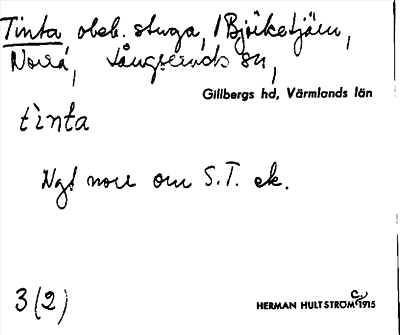 Tinta obeb. stuga, /Björketjärn,
Norra, Långseruds sn,
Gillbergs hd, Värmlands län
tinta
Ngt norr om S.T. ek.
3(2)
HERMAN HULTSTRÖM 1915